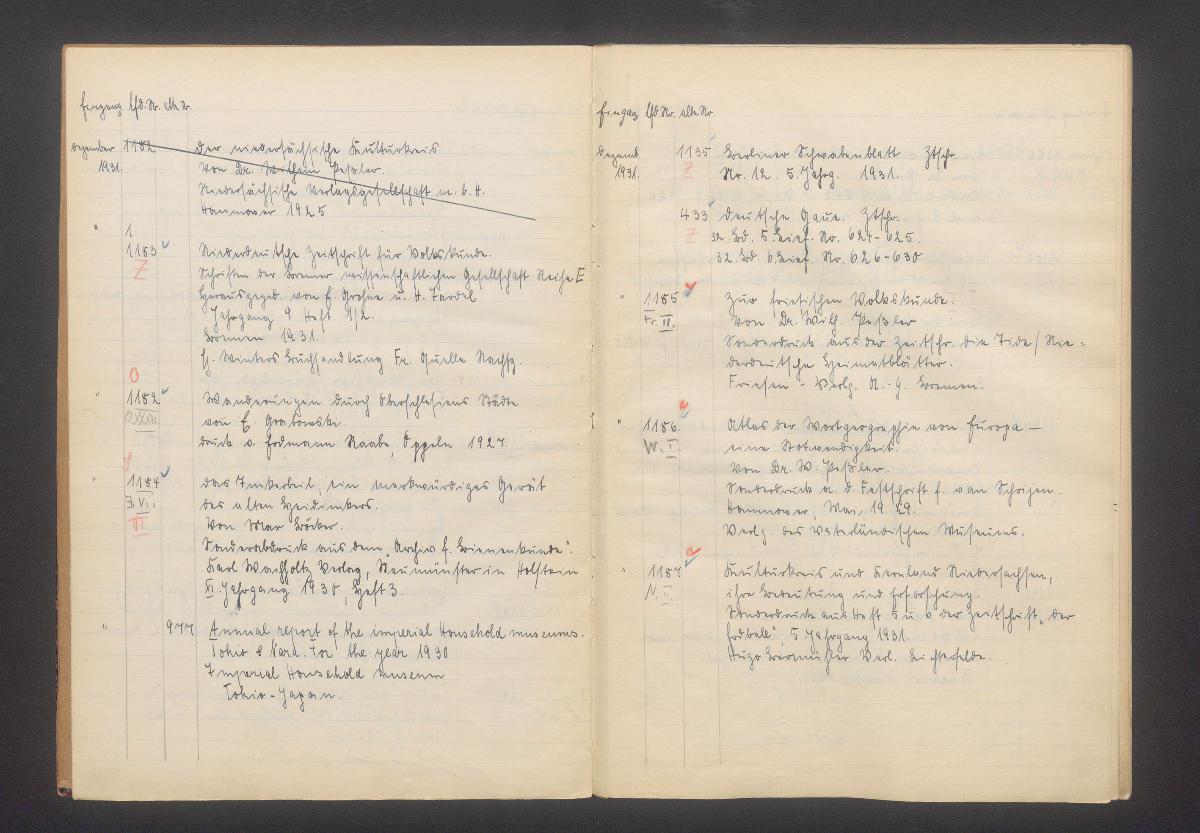 Eingang lfd. Nr. alte Nr.
Dezember 1182 Der niedersächsische Kulturkreis
1931. Von Dr. Wilhelm Peßler.
Niedersächsische Verlagsgesellschaft m. b. H.
Hannover 1925
" 1
1183 Niederdeutsche Zeitschrift für Volkskunde.
Z Schriften der Bremer wissenschaftlichen Gesellschaft Reihe E
Herausgegeb. von E. Grohne u. H. Tardel
Jahrgang 9 Heft 1/2.
Bremen 1931.
G. Winters Buchhandlung Fr. Quelle Nachfg.
O
" 1182 Wanderungen durch Oberschlesiens Städte
O XXXII. von E. Grabowski
Druck v. Erdmann Raabe, Oppeln 1927.
" 1184 Das Imkerbeil, ein merkwürdiges Gerät
J. VI. des alten Heidimkers.
VI Von Max Böcker.
Sonderabdruck aus dem "Archiv f. Bienenkunde".
Karl Wachholtz Verlag, Neumünster in Holstein
XI. Jahrgang 1930, Heft 3.
" 977 Annual report of the imperial Household museums.
Tokio & Nara. For the year 1930
Imperial Household museum
Tokio - Japan.
Eingag lfd. Nr. alte Nr.
Dezemb. 1135 Berliner Schwabenblatt Ztschr.
1931. Z Nr. 12. 5. Jahrg. 1931.
433 Deutsche Gaue. Ztschr.
Z 32. Bd. 5. Lief. No. 621-625.
32. Bd. 6. Lief. No. 626-630
" 1185 Zur friesischen Volkskunde.
Fr. II. Von Dr. Wilh. Peßler
Sonderdruck aus der Zeitschr. die Tide / Nie-
derdeutsche Heimatblätter.
Friesen - Verlg. A.-G. Bremen.
" 1186. Atlas der Wortgeographie von Europa —
W. I. eine Notwendigkeit.
Von Dr. W. Peßler.
Sonderdruck a. d. Festschrift f. van Schrijen.
Hannover, Mai, 1929.
Verlg. des Vaterländischen Museums.
" 1187 Kulturkreis und Kernland Niedersachsen,
N. II. ihre Bedeutung und Erforschung.
Sonderdruck aus Heft 5 u. 6 der Zeitschrift "der
Erdball" 5 Jahrgang 1931.
Hugo Bermühler Verl. Lichterfelde.